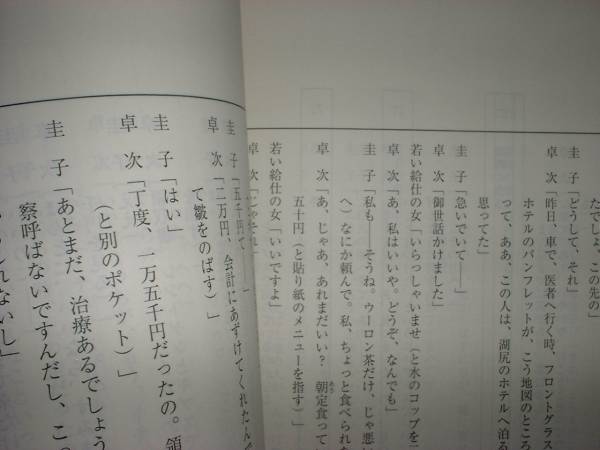 たでしょ、この先の」
圭 子「どうして、それ」
卓 次「昨日、車で、医者へ行く時、フロントグラス
ホテルのパンフレットが、こう地図のところ
って、ああ、この人は、湖尻のホテルへ泊る
思ってた」
圭 子「急いでいて――」
卓 次「御世話かけました」
若い給仕の女「いらっしゃいませ（と水のコップを二
卓 次「あ、私はいいや。どうぞ、なんでも」
圭 子「私も――そうね。ウーロン茶だけ、じゃ悪い
へ）なにか頼んで。私、ちょっと食べられ
卓 次「あ、じゃあ、あれまだいい？ 朝定食って
五十円（と貼り紙のメニューを指す）」
若い給仕の女「いいですよ」
卓 次「じゃそれ」
圭 子「五千円て――」
卓 次「二万円、会計にあずけてくれたんで
て皺をのばす）」
圭 子「はい」
卓 次「丁度、一万五千円だったの。領
（と別のポケット）」
圭 子「あとまだ、治療あるでしょう
察呼ばないですんだし、こ
しれないし」